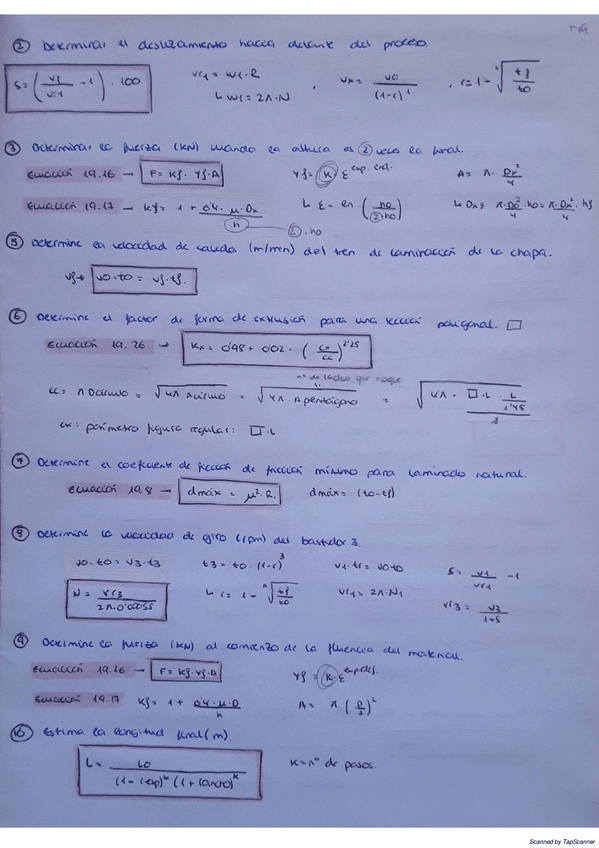 ② Determinar el deslizamiento hacia delante del proceso.
S = (vf/vr1 - 1) · 100
vr1 = w1 · R
↳ w1 = 2π · N
, vx = v0/(1-r)^1 , r = 1 - ⁿ√(tf/t0)
③ Determinar la fuerza (kN) cuando la altura es ② veces la final.
Ecuación 19.16 → F = Kf · Yf · A
Yf = K ε^exp. end.
A = π · Dx²/4
Ecuación 19.17 → Kf = 1 + 0'4 · μ · Dx/h
② · h0
↳ ε = ln (h0/②h0)
↳ Dx ⇒ π · D0²/4 · h0 = π · Dx²/4 · hf
⑤ Determine la velocidad de salida (m/min) del tren de laminación de la chapa.
vf → v0 · t0 = vf · tf.
⑥ Determine el factor de forma de extrusión para una sección poligonal. □
Ecuación 19.26 → Kx = 0'98 + 0'02 · (cx/cc)^2'25
nº de lados que toque
cc = π Dcirculo = √4π Acirculo = √4π · Apentágono = √4π · □ · L · L/1'45
cx: perímetro figura regular: □ · L
⑦ Determine el coeficiente de fricción de fricción mínimo para laminado natural.
Ecuación 19.8 → dmáx = μ² · R. dmáx = (t0 - tf)
⑧ Determine la velocidad de giro (rpm) del bastidor 3.
v0 · t0 = v3 · t3 t3 = t0 · (1-r)³ v1 · t1 = v0 · t0 S = v1/vr1 - 1
N = vr3/2π · 0'00055
↳ r = 1 - ⁿ√(tf/t0) vr1 = 2π · N1 vr3 = v3/1+S
⑨ Determine la fuerza (kN) al comienzo de la fluencia del material.
Ecuación 19.16 → F = Kf · Yf · A Yf = K ε^exp def.
Ecuación 19.17 Kf = 1 + 0'4 · μ · D/h A = π (D/2)²
⑩ Estima la longitud final (m)
L = L0/(1 - resp)^k (1 + rancho)^k
K = nº de pasos.
Scanned by TapScanner